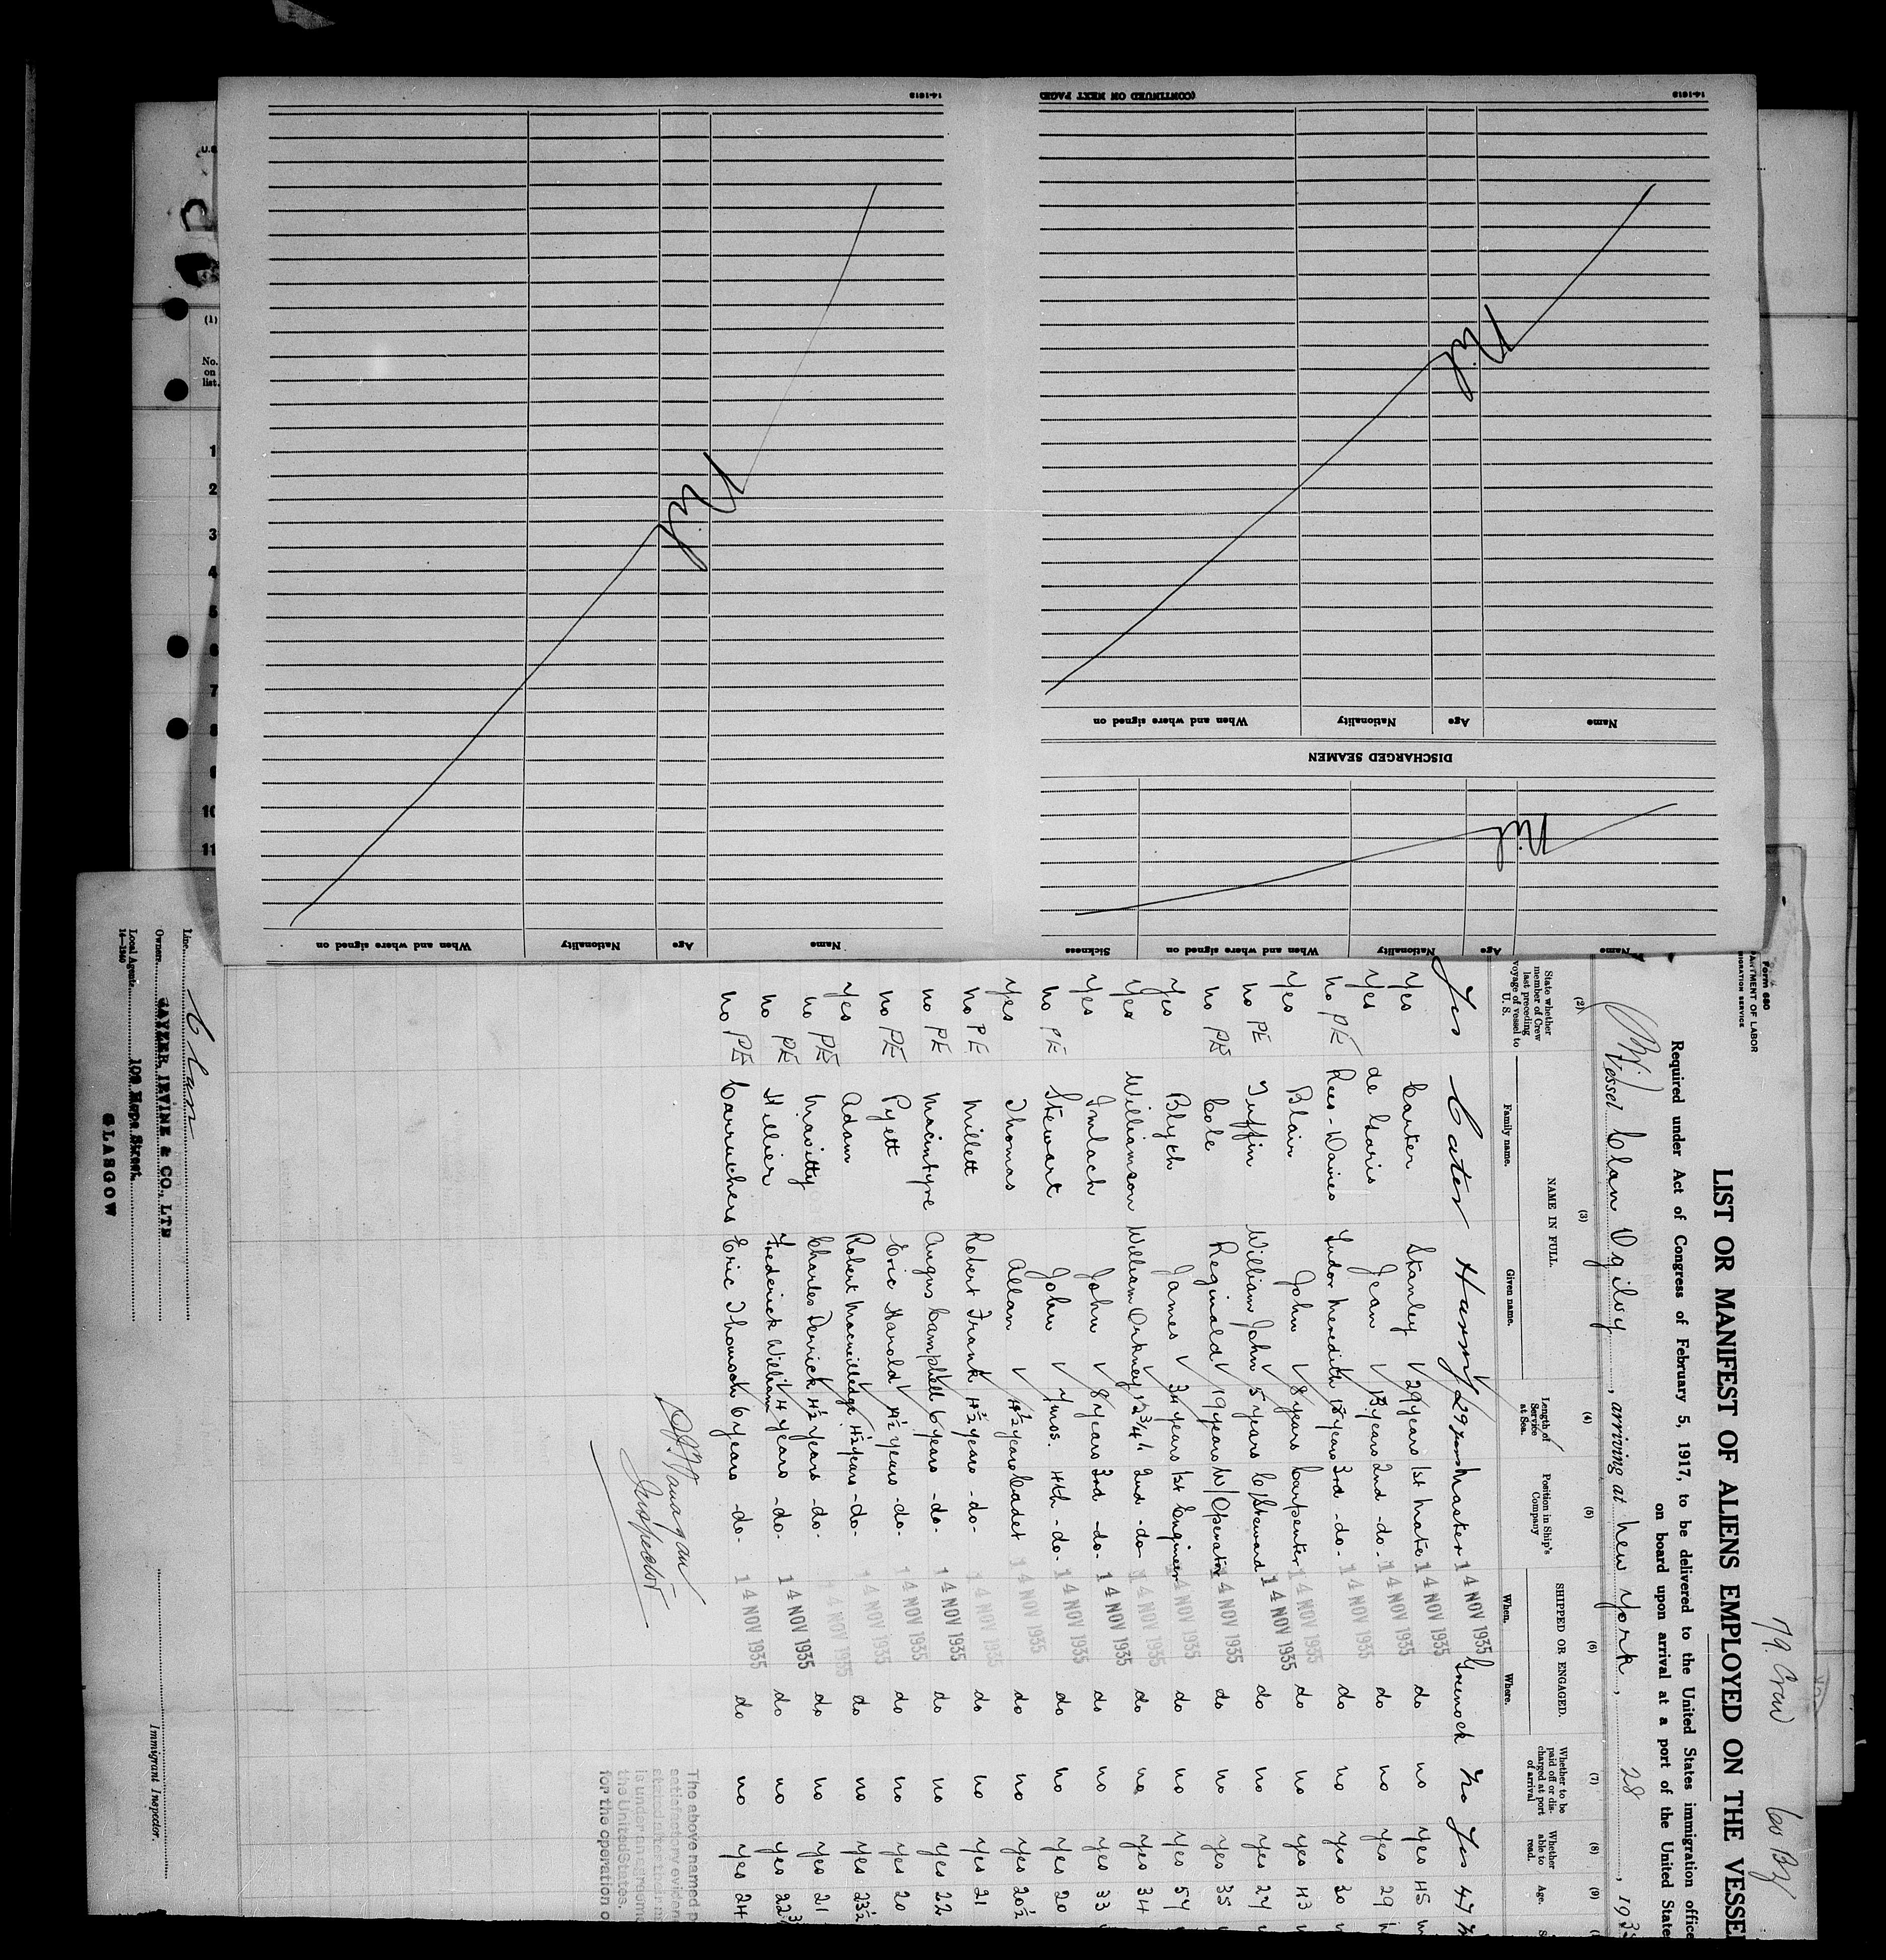 Form 680
LIST OR MANIFEST OF ALIENS EMPLOYED ON THE VESSEL
Required under Act of Congress of February 5, 1917, to be delivered to the United States immigration office
on board upon arrival at a port of the United State
Vessel Clan Ogilvy, arriving at New York, 28, 193
(2) (3) (4) (5) (6) (7) (8) (9)
State whether member of Crew last preceding voyage of vessel to U. S.
NAME IN FULL
Family name. Given name.
Length of Service at Sea.
Position in Ship's Company
SHIPPED OR ENGAGED.
When. Where.
Whether to be paid off or discharged at port of arrival
Whether able to read.
Age.
Yes Cater Harry 29 years Master 14 NOV 1935 Greenock No Yes 47
yes Carter Stanley 29 years 1st Mate 14 NOV 1935 do no yes 45
yes de Garis Jean 13 years 2nd -do- 14 NOV 1935 do no yes 29
no PE Rees-Davies Tudor Meredith years 3rd -do- 14 NOV 1935 do no yes 30
yes Blair John 8 years Carpenter 14 NOV 1935 do no yes 43
no PE Tuffin William John 5 years C/Steward 14 NOV 1935 do no yes 27
no PE Cole Reginald 19 years W/Operator 14 NOV 1935 do no yes 35
yes Blyth James 34 years 1st Engineer 14 NOV 1935 do no yes 57
yes Williamson William Orkney 12 3/4 2nd -do- 14 NOV 1935 do no yes 34
yes Imlach John 8 years 3rd -do- 14 NOV 1935 do no yes 33
no PE Stewart John 7 mos. 4th -do- 14 NOV 1935 do no yes 20
yes Thomas Allan 4½ years Cadet 14 NOV 1935 do no yes 20½
no PE Millett Robert Frank 4½ years -do- 14 NOV 1935 do no yes 21
no PE Macintyre Angus Campbell 6 years -do- 14 NOV 1935 do no yes 22
no PE Pyett Eric Harold 4½ years -do- 14 NOV 1935 do no yes 20
yes Adam Robert Macneilledge 4½ years -do- 14 NOV 1935 do no yes 23½
no PE Mavitty Charles Derrick 4½ years -do- 14 NOV 1935 do no yes 21
no PE Hillier Frederick William 4 years -do- 14 NOV 1935 do no yes 22
no PE Carruthers Eric Thomson 6 years -do- 14 NOV 1935 do no yes 24
Inspector
The above named p
satisfactory eviden
is under an agreeme
the United States.
for the operation o
Line Clan
Owners CAYZER, IRVINE & CO., LTD
Local Agents 109 Hope Street
GLASGOW
14-1240
Immigrant Inspector.
Name Age Nationality When and where signed on Sickness
Nil
DISCHARGED SEAMEN
Name Age Nationality When and where signed on
Nil
(CONTINUED ON NEXT PAGE)
14-1612
Name Age Nationality When and where signed on
Nil
14-1612
(1)
No. on list.
1
2
3
4
5
6
7
8
9
10
11